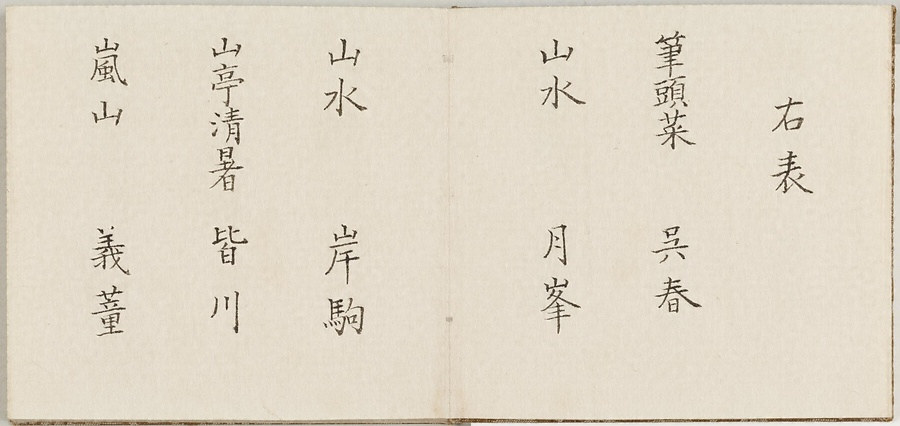 右表
筆頭菜 呉春
山水 月峯
山水 岸駒
山亭清暑 皆川
嵐山 義董